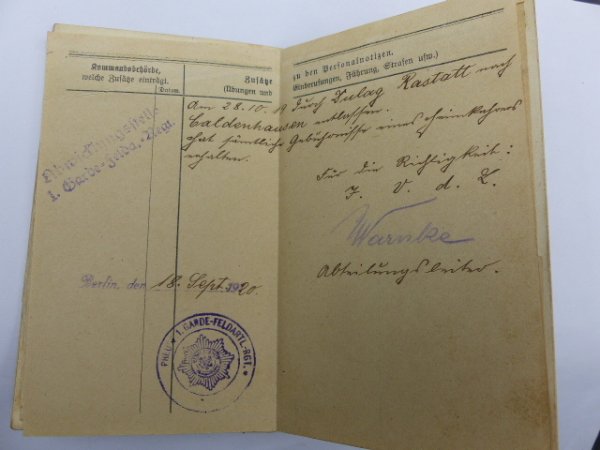 Kommandobehörde,
welche Zusätze einträgt.
Datum.
Zusätze
(Übungen und
zu den Personalnotizen.
Einberufungen, Führung, Strafen usw.)
Am 28.10.19 durch Dulag Rastatt nach
Caldenhausen entlassen.
Hat sämtliche Gebührnisse eines Heimkehrers
erhalten.
Abwicklungsstelle
1. Garde-Felda.-Regt.
Für die Richtigkeit:
J. V. d. L.
Warnke
Abteilungsleiter.
Berlin, den 18. Sept. 1920.
1. GARDE-FELDARTL.-RGT.